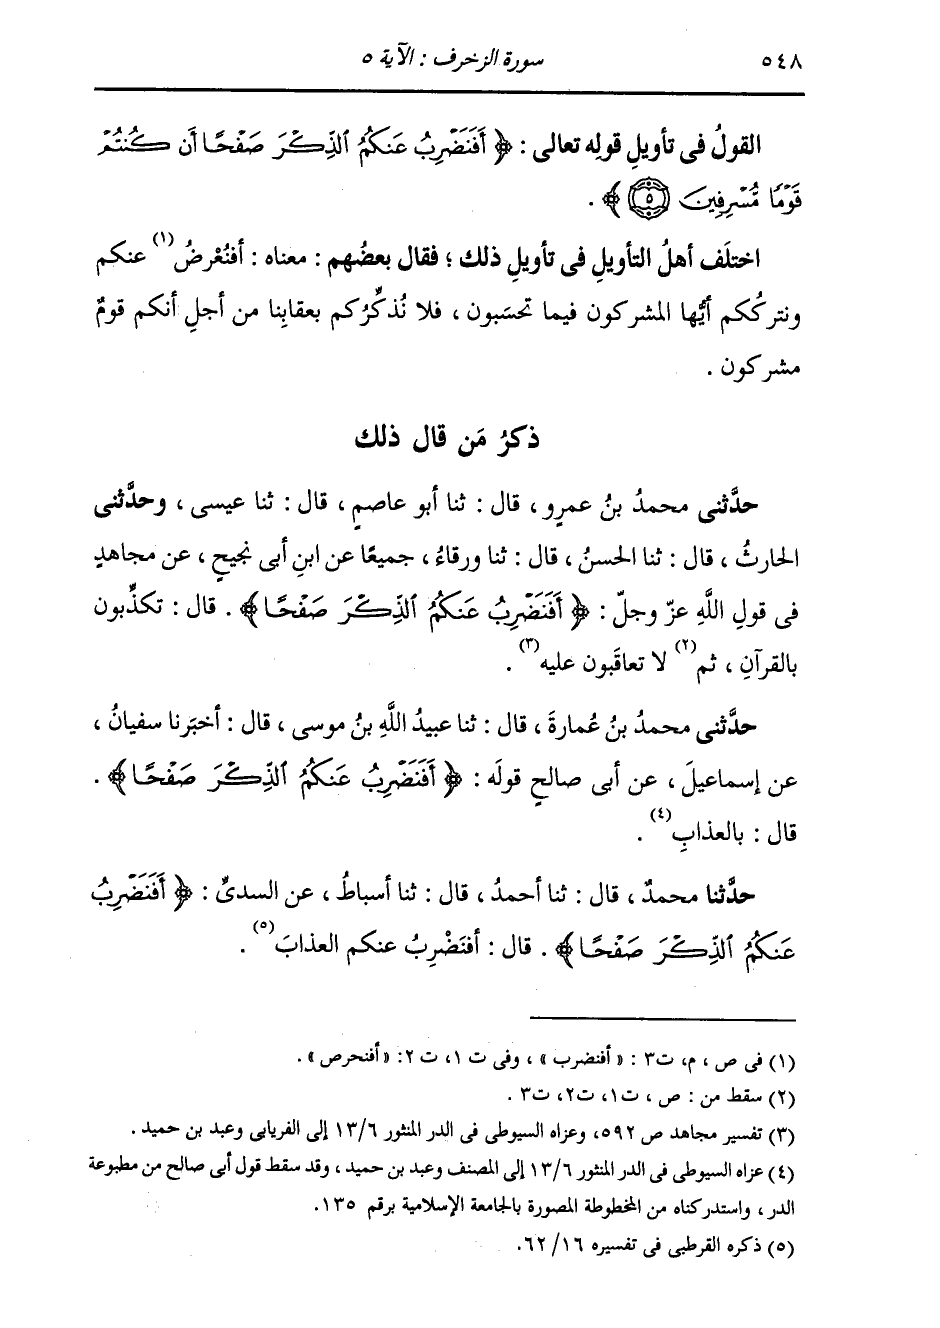 ٥٤٨ سورة الزخرف : الآية ٥
القولُ فى تأويلِ قولِه تعالى : ﴿ أَفَنَضْرِبُ عَنكُمُ ٱلذِّكْرَ صَفْحًا أَن كُنتُمْ
قَوْمًا مُّسْرِفِينَ ٥ ﴾ .
اختلَف أهلُ التأويلِ فى تأويلِ ذلك ؛ فقال بعضُهم : معناه : أفنُعْرِضُ(١) عنكم
ونتركُكم أيُّها المشركون فيما تحسَبون ، فلا نُذكِّرُكم بعقابِنا من أجلِ أنكم قومٌ
مشركون .
ذكرُ مَن قال ذلك
حدَّثنى محمدُ بنُ عمرٍو ، قال : ثنا أبو عاصمٍ ، قال : ثنا عيسى ، وحدَّثنى
الحارثُ ، قال : ثنا الحسنُ ، قال : ثنا ورقاءُ ، جميعًا عن ابنِ أبى نجيحٍ ، عن مجاهدٍ
فى قولِ اللَّهِ عزّ وجلّ : ﴿ أَفَنَضْرِبُ عَنكُمُ ٱلذِّكْرَ صَفْحًا ﴾ . قال : تكذِّبون
بالقرآنِ ، ثم(٢) لا تعاقَبون عليه(٣) .
حدَّثنى محمدُ بنُ عُمارةَ ، قال : ثنا عبيدُ اللَّهِ بنُ موسى ، قال : أخبَرنا سفيانُ ،
عن إسماعيلَ ، عن أبى صالحٍ قولَه : ﴿ أَفَنَضْرِبُ عَنكُمُ ٱلذِّكْرَ صَفْحًا ﴾ .
قال : بالعذابِ(٤) .
حدَّثنا محمدٌ ، قال : ثنا أحمدُ ، قال : ثنا أسباطُ ، عن السدىِّ : ﴿ أَفَنَضْرِبُ
عَنكُمُ ٱلذِّكْرَ صَفْحًا ﴾ . قال : أفنَضْرِبُ عنكم العذابَ(٥) .
(١) فى ص ، م، ت٣ : « أفنضرب » ، وفى ت ١، ت ٢: « أفنحرص » .
(٢) سقط من : ص ، ت١، ت٢، ت٣ .
(٣) تفسير مجاهد ص ٥٩٢، وعزاه السيوطى فى الدر المنثور ١٣/٦ إلى الفريابى وعبد بن حميد .
(٤) عزاه السيوطى فى الدر المنثور ١٣/٦ إلى المصنف وعبد بن حميد ، وقد سقط قول أبى صالح من مطبوعة
الدر ، واستدركناه من المخطوطة المصورة بالجامعة الإسلامية برقم ١٣٥.
(٥) ذكره القرطبى فى تفسيره ٦٢/١٦.